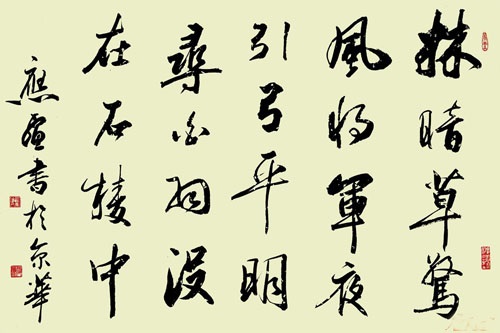 林暗草驚
風將軍夜
引弓平明
尋白羽沒
在石棱中
應書於京華